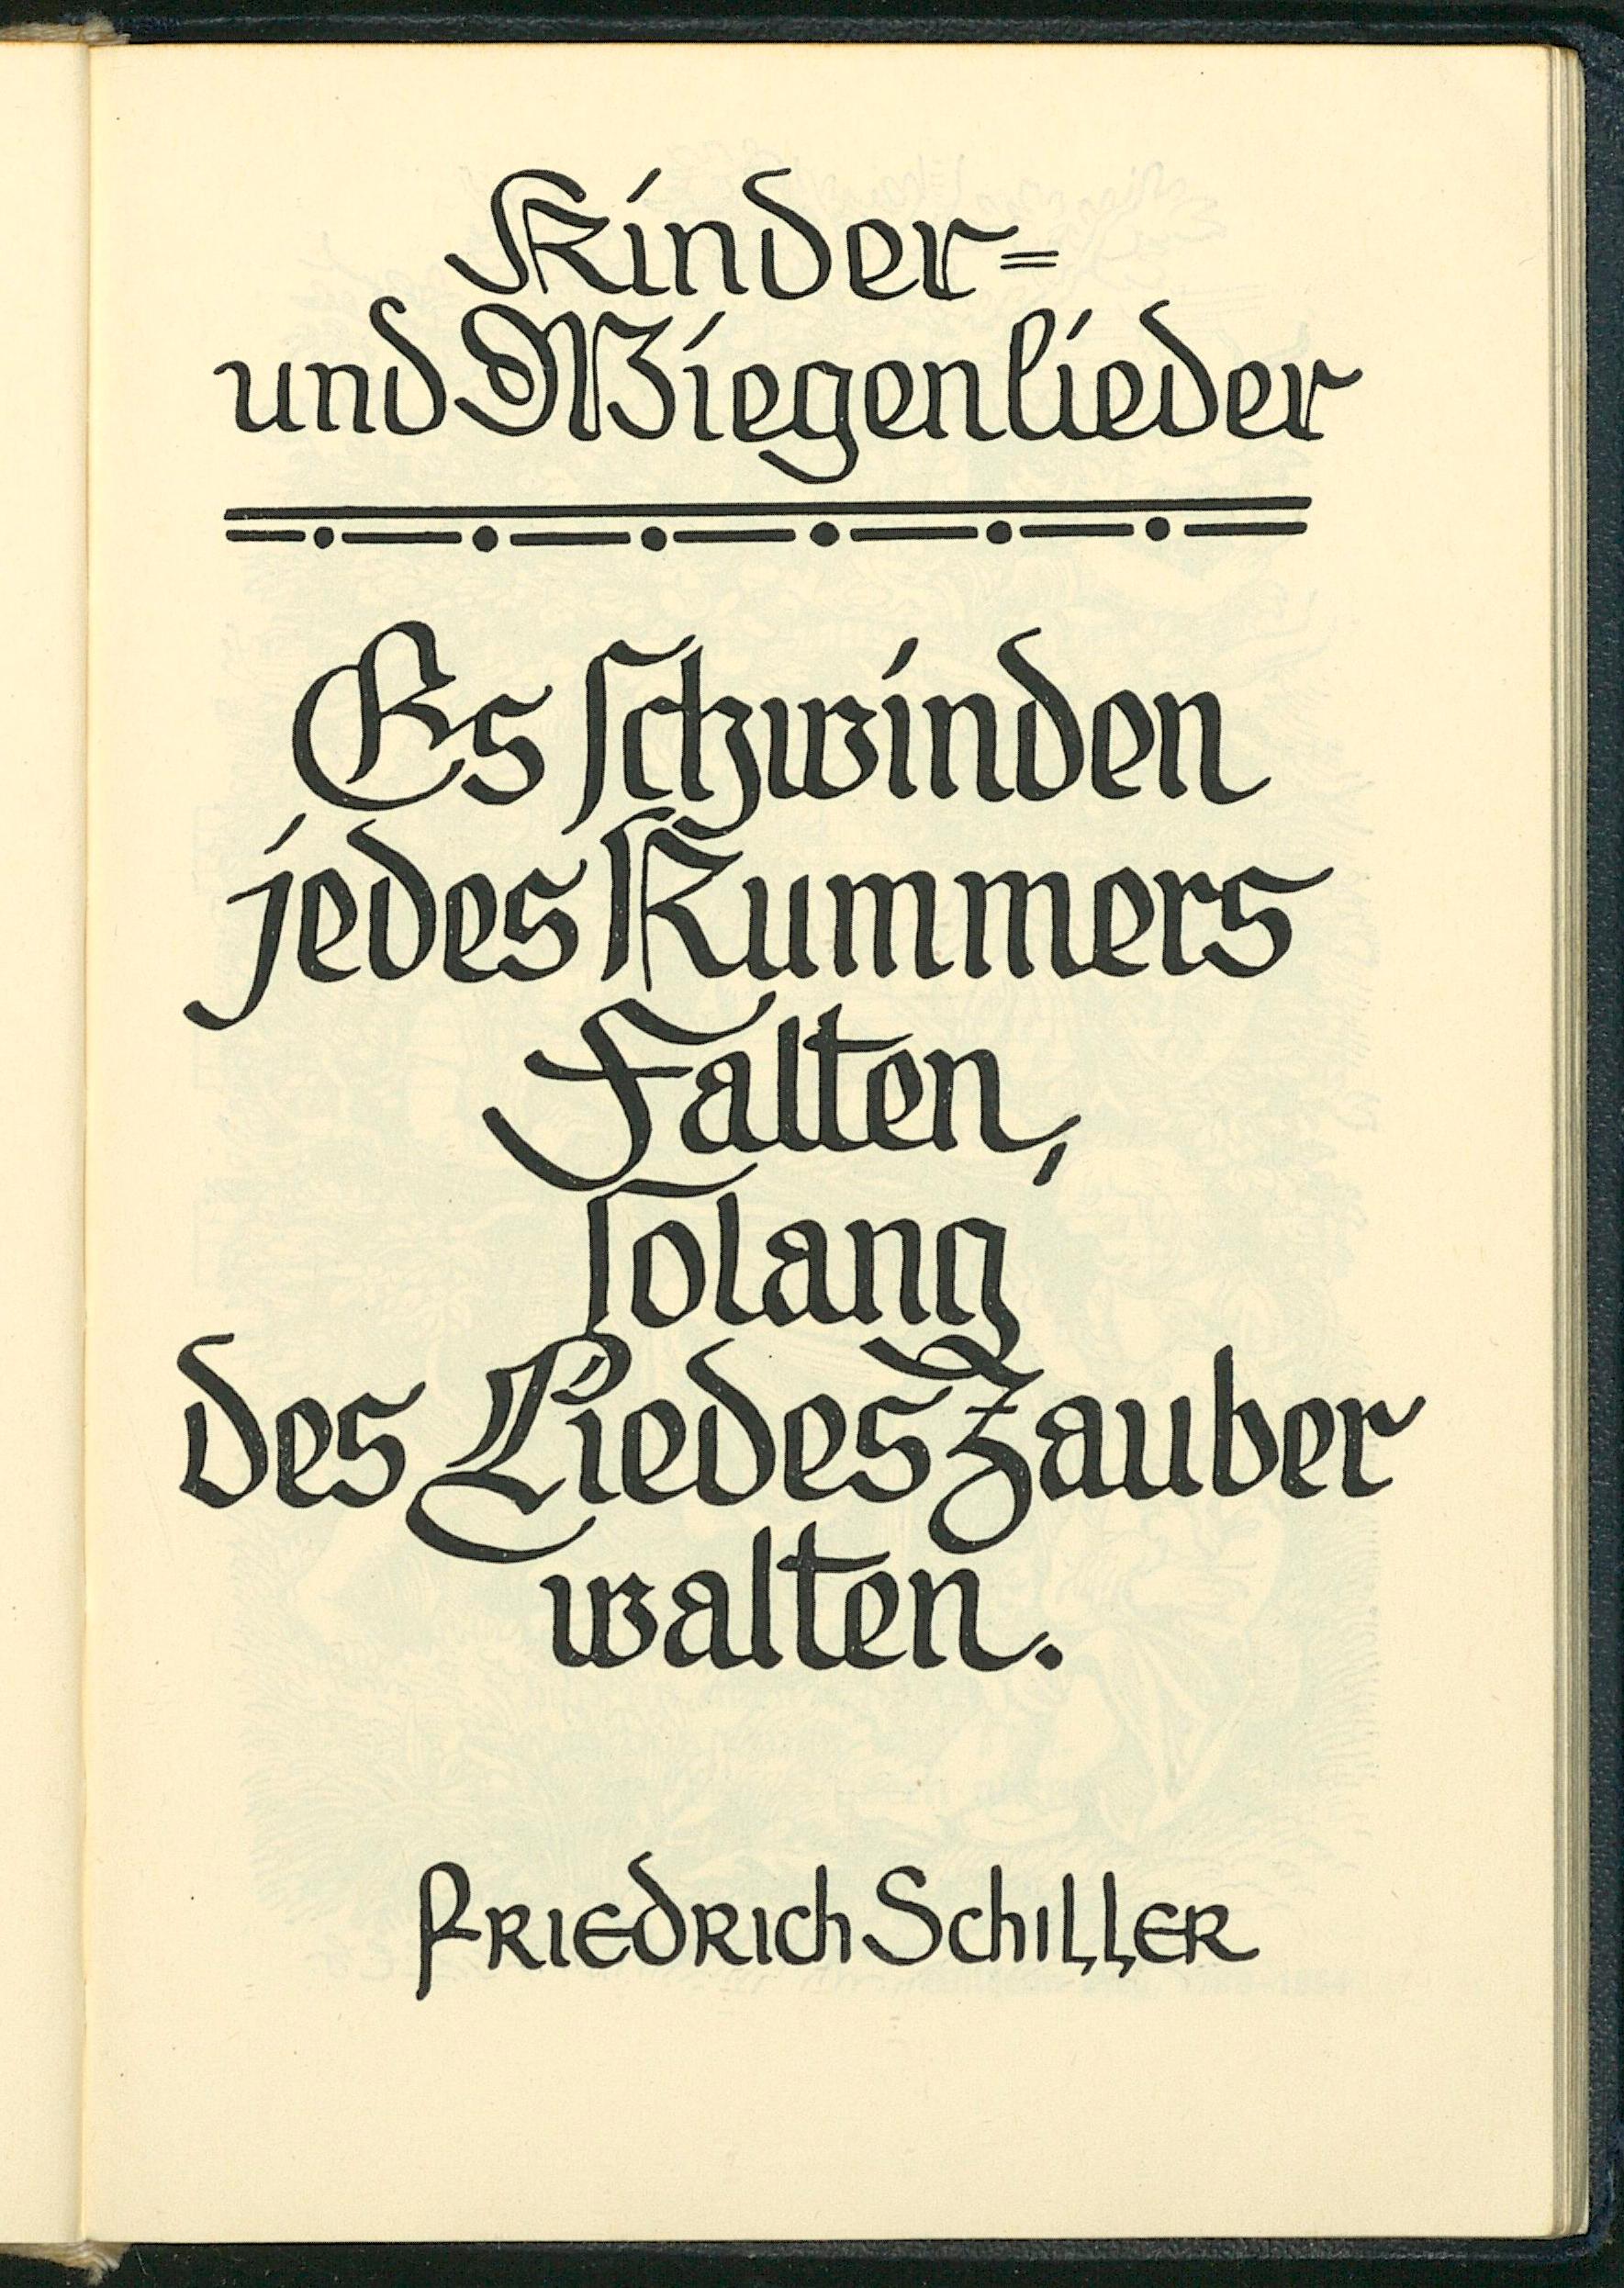 Kinder=
und Wiegenlieder
Es schwinden
jedes Kummers
Falten,
solang
des Liedes Zauber
walten.
Friedrich Schiller